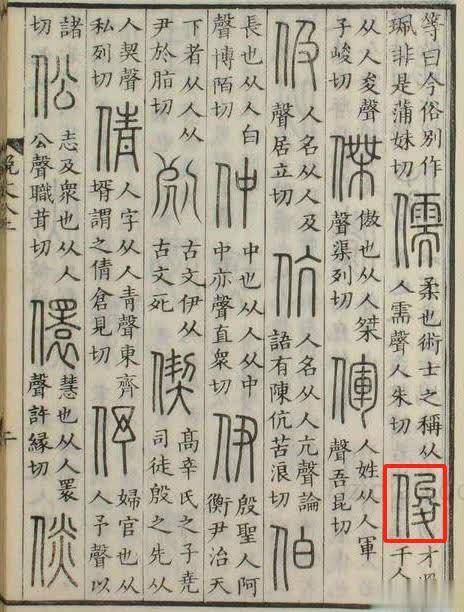 等曰今俗別作
珮非是蒲妹切
儒
柔也術士之稱从
人需聲人朱切
俊
千人
从人夋聲
子峻切
傑
傲也从人桀
聲渠列切
㑮
人姓从人軍
聲吾昆切
伋
人名从人及
聲居立切
伉
人名从人亢聲論
語有陳伉苦浪切
伯
長也从人白
聲博陌切
仲
中也从人从中
中亦聲直衆切
伊
殷聖人阿
衡尹治天
下者从人从
尹於脂切
𠈧
古文伊从
古文死
偰
高辛氏之子堯
司徒殷之先从
人契聲
私列切
倩
人字从人青聲東齊
壻謂之倩倉見切
伃
婦官也从
人予聲以
諸
切
伀
志及衆也从人
公聲職茸切
儇
慧也从人睘
聲許緣切
倓
說文八上